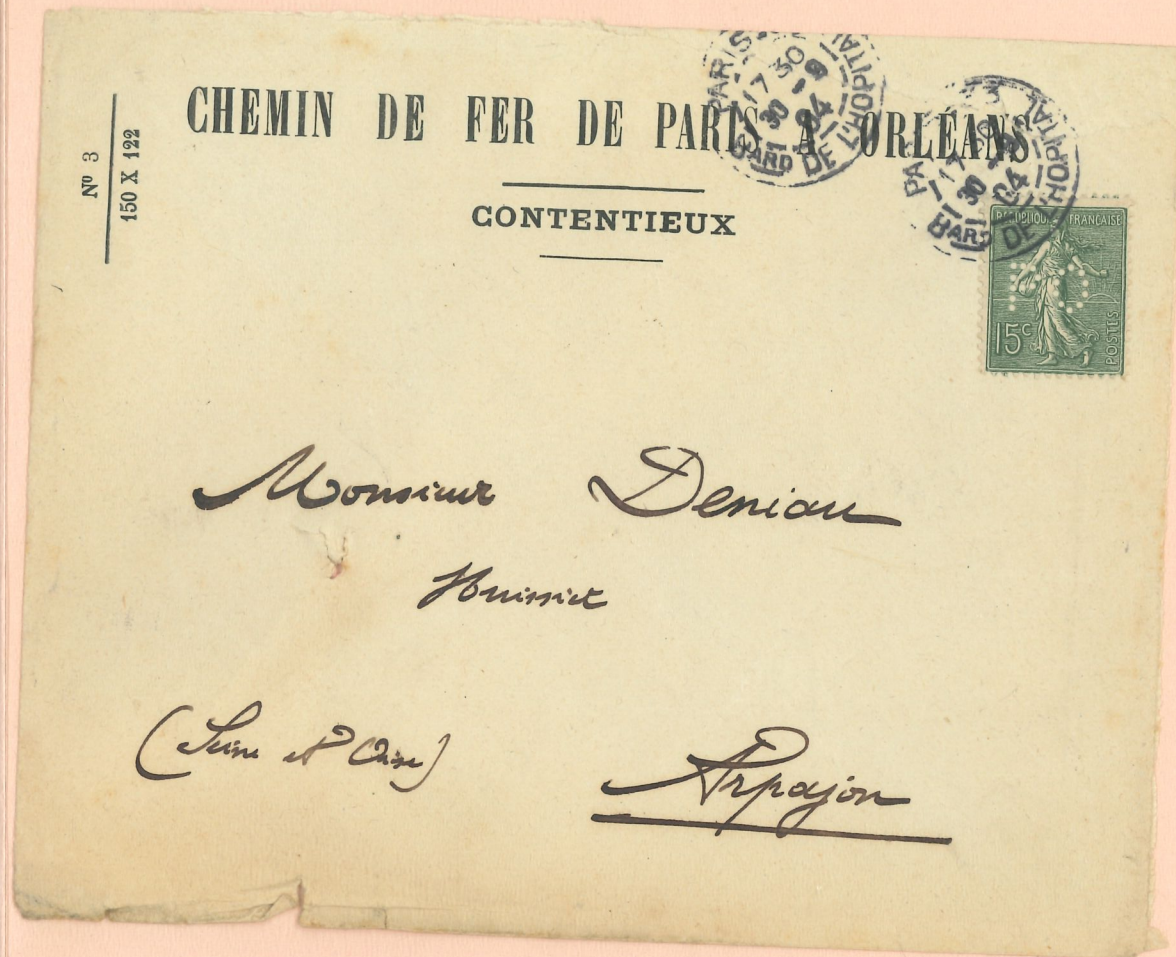 CHEMIN DE FER DE PARIS A ORLÉANS
CONTENTIEUX
Nº 3
150 X 122
PARIS
17 30
30 - 9
04
BARD DE L'HOPITAL
PA
17 30
30 - 9
04
BARD DE L'HOPITAL
REPUBLIQUE FRANÇAISE
15c
POSTES
Monsieur Deniau
Huissier
(Seine et Oise)
Arpajon